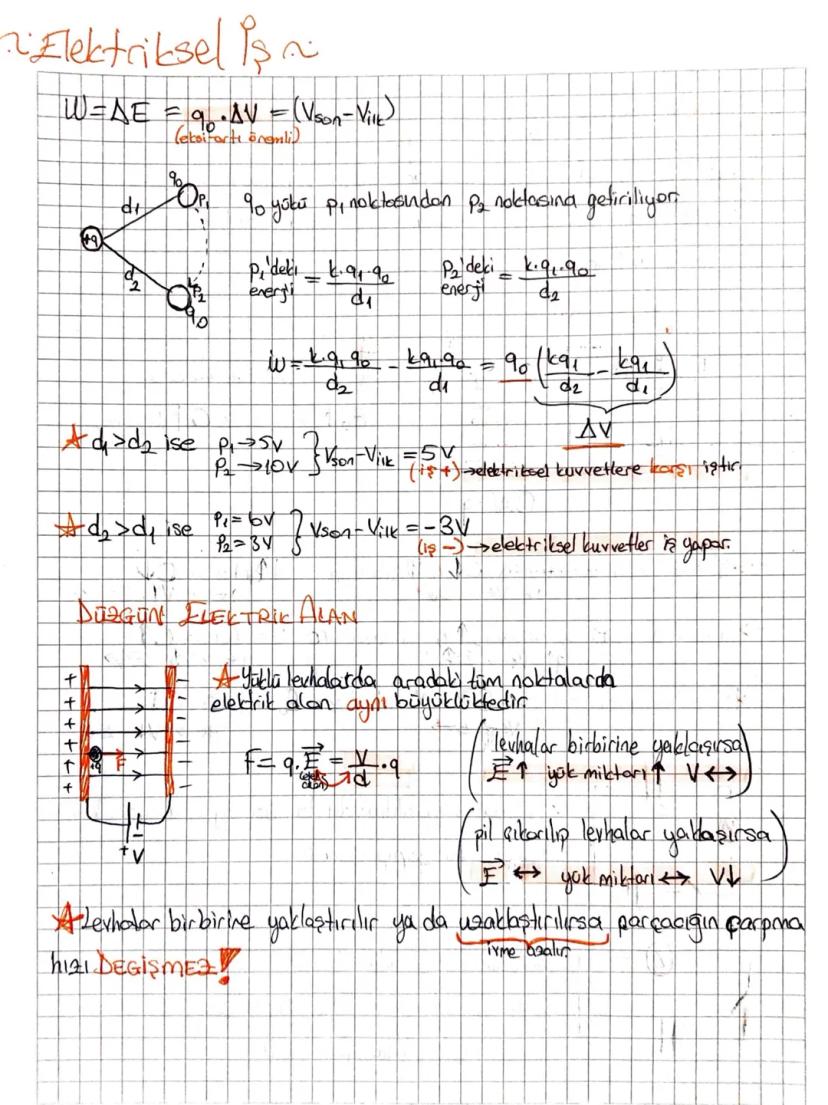 ~ Elektriksel İş ~
W = ΔE = q₀.ΔV = (Vson-Vilk)
(eksi artı önemli)
q₀
P₁
d₁
+q
d₂
P₂
q₀
q₀ yükü p₁ noktasından p₂ noktasına getiriliyor.
P₁'deki enerji = k.q₁.q₀ / d₁
P₂'deki enerji = k.q₁.q₀ / d₂
W = k.q₁.q₀ / d₂ - kq₁.q₀ / d₁ = q₀ (kq₁ / d₂ - kq₁ / d₁)
ΔV
☆ d₁>d₂ ise P₁→5V P₂→10V } Vson-Vilk = 5V
(iş +)→elektriksel kuvvetlere karşı iştir.
☆ d₂>d₁ ise P₁=6V P₂=3V } Vson-Vilk = -3V
(iş -)→elektriksel kuvvetler iş yapar.
DÜZGÜN ELEKTRİK ALAN
☆ Yüklü levhalarda aradaki tüm noktalarda
elektrik alan aynı büyüklüktedir.
+ + + + + +
- - - - - -
+q
F
+ -
V
F = q.E⃗ = V/d . q
(elekt. alan)
(levhalar birbirine yaklaşırsa
E⃗↑ yük miktarı↑ V↔)
(pil çıkarılıp levhalar yaklaşırsa
E⃗ ↔ yük miktarı↔ V↓)
☆ Levhalar birbirine yaklaştırılır ya da uzaklaştırılırsa parçacığın çarpma
ivme azalır.
hızı DEĞİŞMEZ!